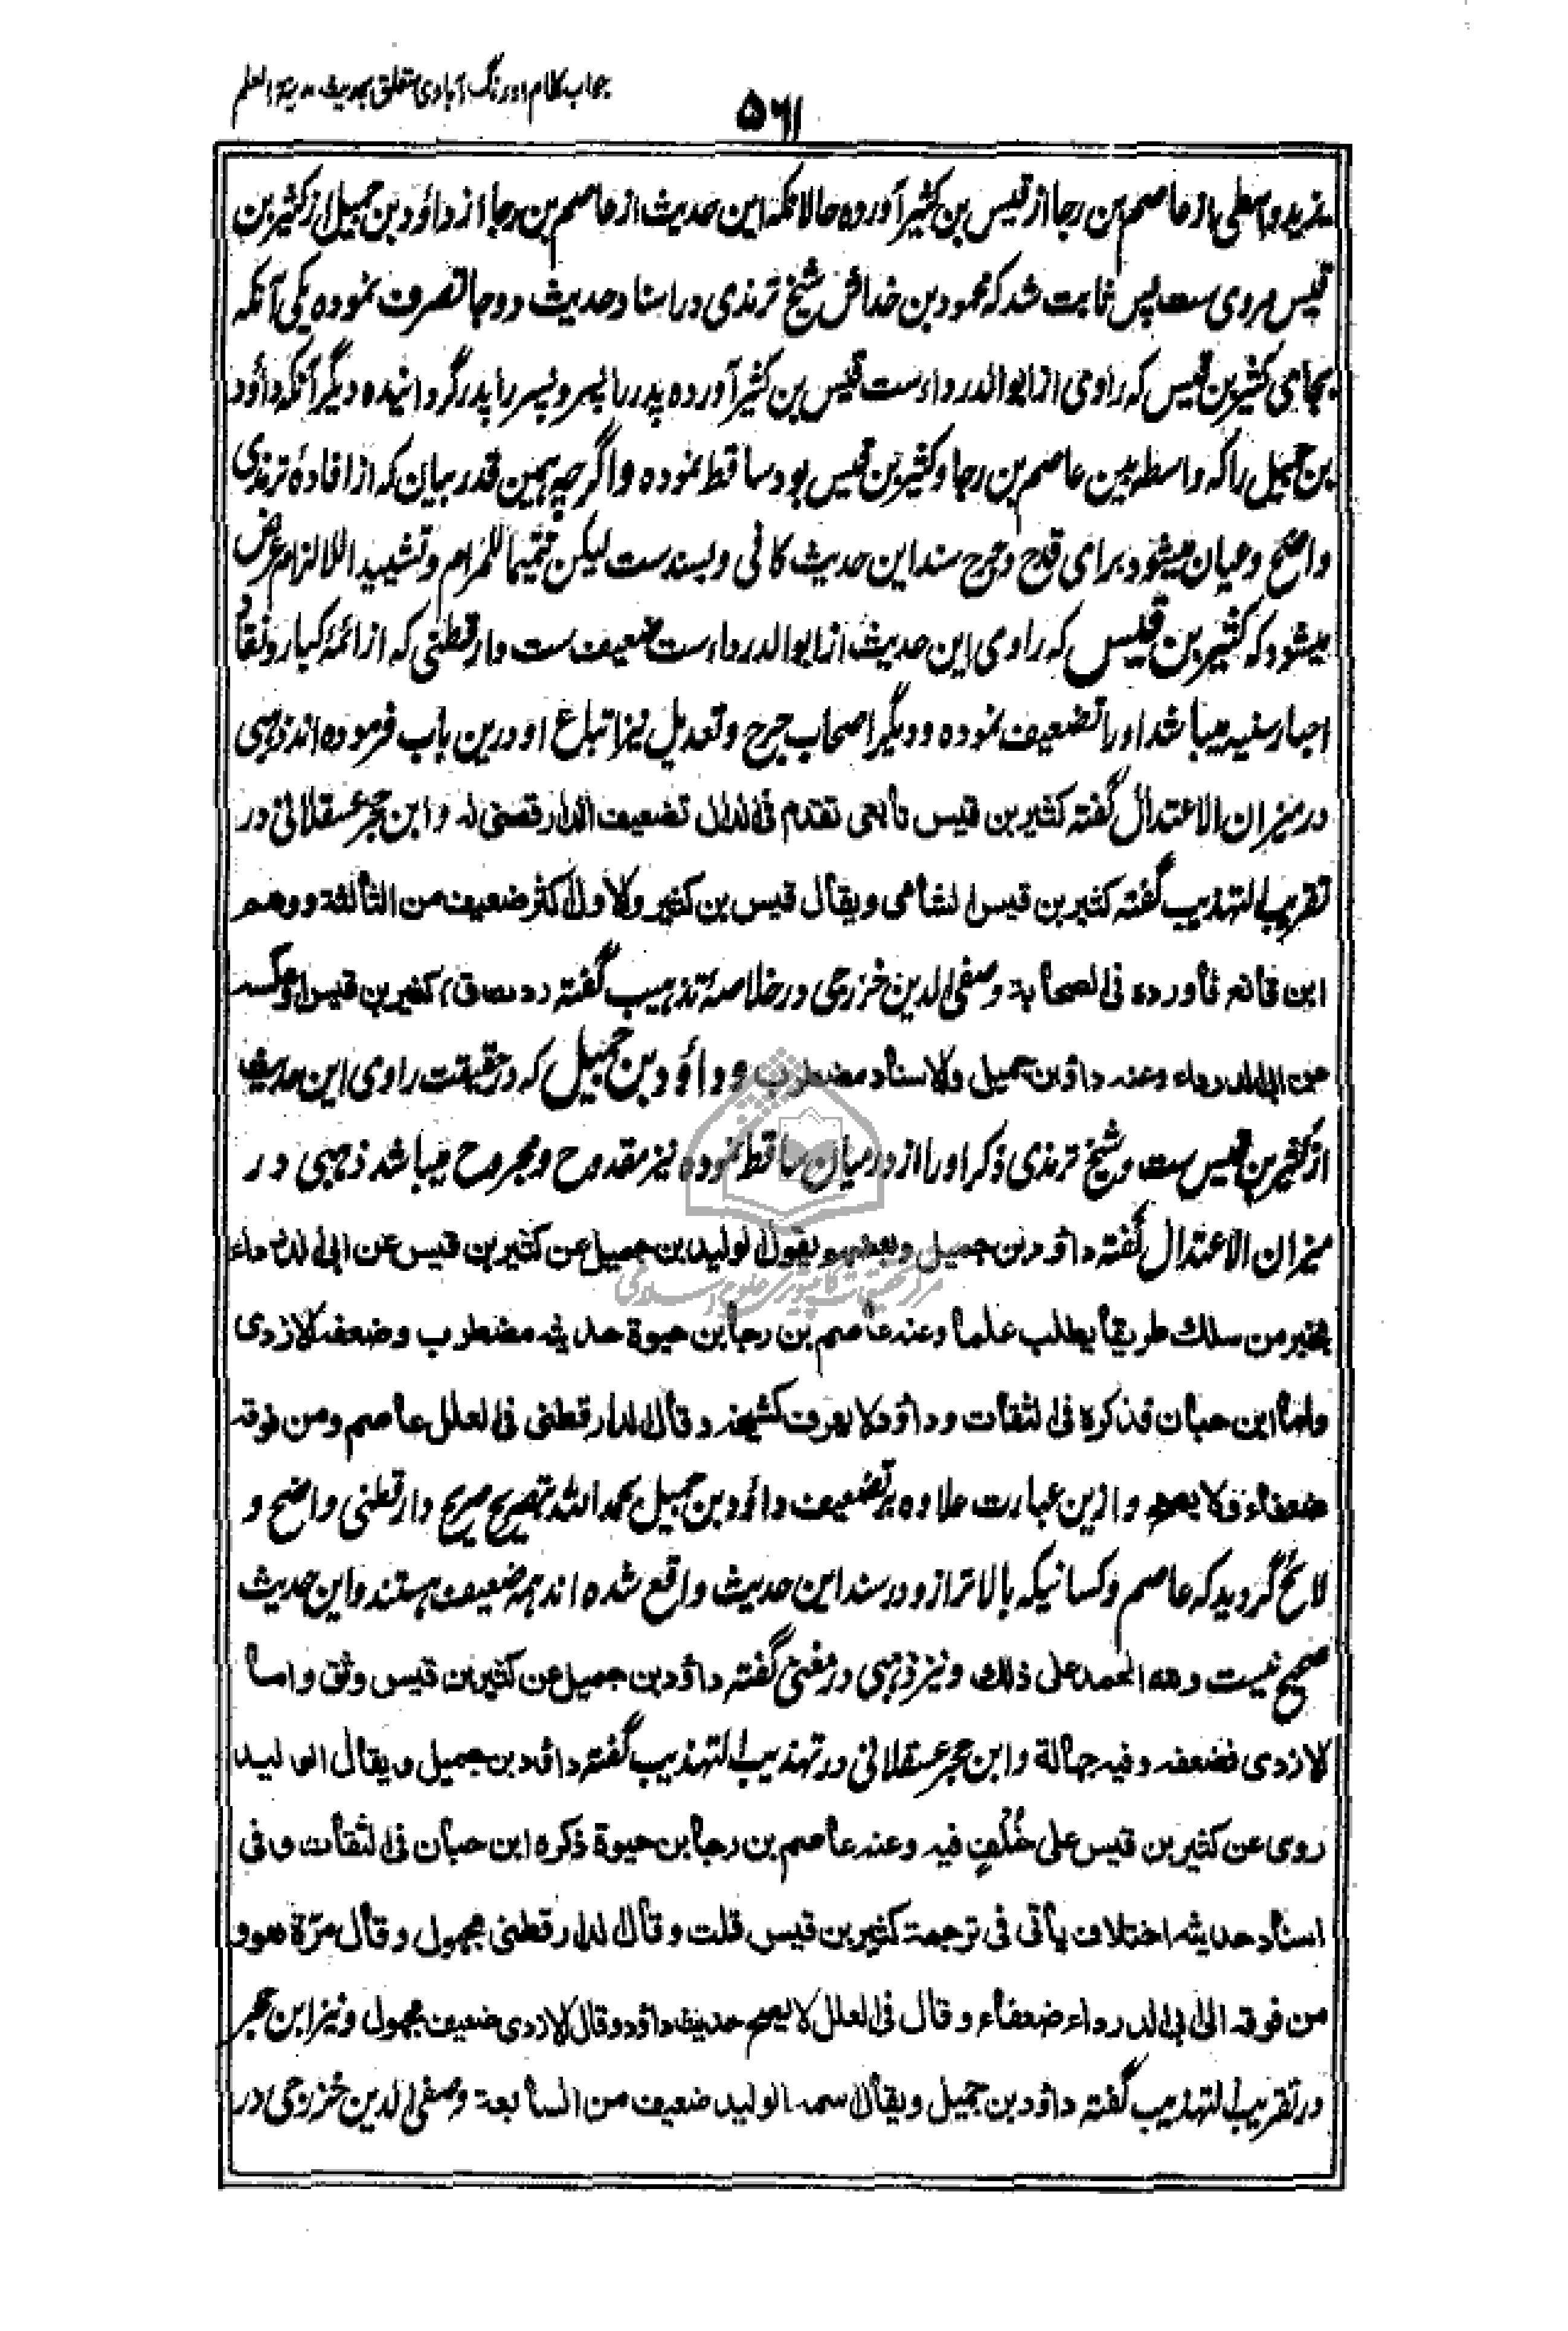 جواب کلام اورنگ آبادی متعلق بحدیث مدینة العلم
۵۶۱
یزید واسطی از عاصم بن رجا از قیس بن کثیر آورده حالانکه این حدیث از عاصم بن رجا از داؤد بن جمیل از کثیر بن
قیس مروی ست پس ثابت شد که محمود بن خداش شیخ ترمذی در اسناد حدیث دو جا تصرف نموده یکی آنکه
بجای کثیر بن قیس که راوی از ابو الدرداء ست قیس بن کثیر آورده پدر را پسر و پسر را پدر گردانیده دیگر آنکه داؤد
بن جمیل را که واسطه بین عاصم بن رجا و کثیر بن قیس بود ساقط نموده و اگرچه همین قدر بیان که از افادهٔ ترمذی
واضح و عیان میشود برای قدح و جرح سند این حدیث کافی و بسندست لیکن تتمیما للمرام و تشییدا للالزام عرض
میشود که کثیر بن قیس که راوی این حدیث از ابو الدرداء ست ضعیف ست دارقطنی که از ائمهٔ کبار و نقاد
احبار سنیه میباشد او را تضعیف نموده و دیگر اصحاب جرح و تعدیل نیز اتباع او درین باب فرموده اند ذهبی
در میزان الاعتدال گفته کثیر بن قیس تابعی تقدم فی الدال تضعیف الدارقطنی له و ابن حجر عسقلانی در
تقریب التهذیب گفته کثیر بن قیس الشامی ویقال قیس بن کثیر والاول اکثر ضعیف من الثالثة ووهم
ابن قانع فاورده فی الصحابة و صفی الدین خزرجی در خلاصهٔ تذهیب گفته (د ت ق) کثیر بن قیس او عکسه
عن ابی الدرداء وعنه داؤد بن جمیل والاسناد مضطرب و داؤد بن جمیل که در حقیقت راوی این حدیث
از کثیر بن قیس ست و شیخ ترمذی ذکر او را از درمیان ساقط نموده نیز مقدوح و مجروح میباشد ذهبی در
میزان الاعتدال گفته داؤد بن جمیل وبعضهم یقول الولید بن جمیل عن کثیر بن قیس عن ابی الدرداء
بخبر من سلك طریقا یطلب علما وعنه عاصم بن رجا بن حیوة حدیثه مضطرب وضعفه الازدی
واما ابن حبان فذکره فی الثقات وداؤد لا یعرف کشیخه وقال الدارقطنی فی العلل عاصم ومن فوقه
ضعفاء ولا یصح و ازین عبارت علاوه بر تضعیف داؤد بن جمیل بحمد الله تصریح صریح دارقطنی واضح و
لائح گردید که عاصم و کسانیکه بالاتر ازو در سند این حدیث واقع شده اند همه ضعیف هستند و این حدیث
صحیح نیست ولله الحمد علی ذلك و نیز ذهبی در مغنی گفته داؤد بن جمیل عن کثیر بن قیس وثق واما
الازدی فضعفه وفیه جهالة و ابن حجر عسقلانی در تهذیب التهذیب گفته داؤد بن جمیل ویقال الولید
روی عن کثیر بن قیس علی خُلفٍ فیه وعنه عاصم بن رجا بن حیوة ذکره ابن حبان فی الثقات وفی
اسناد حدیثه اختلاف یأتی فی ترجمة کثیر بن قیس قلت وقال الدارقطنی مجهول وقال مرّة هو و
من فوقه الی ابی الدرداء ضعفاء وقال فی العلل لا یصح حدیث داؤد وقال الازدی ضعیف مجهول و نیز ابن حجر
در تقریب التهذیب گفته داؤد بن جمیل ویقال اسمه الولید ضعیف من السابعة و صفی الدین خزرجی در
مرکز تحقیقات کامپیوتری علوم اسلامی